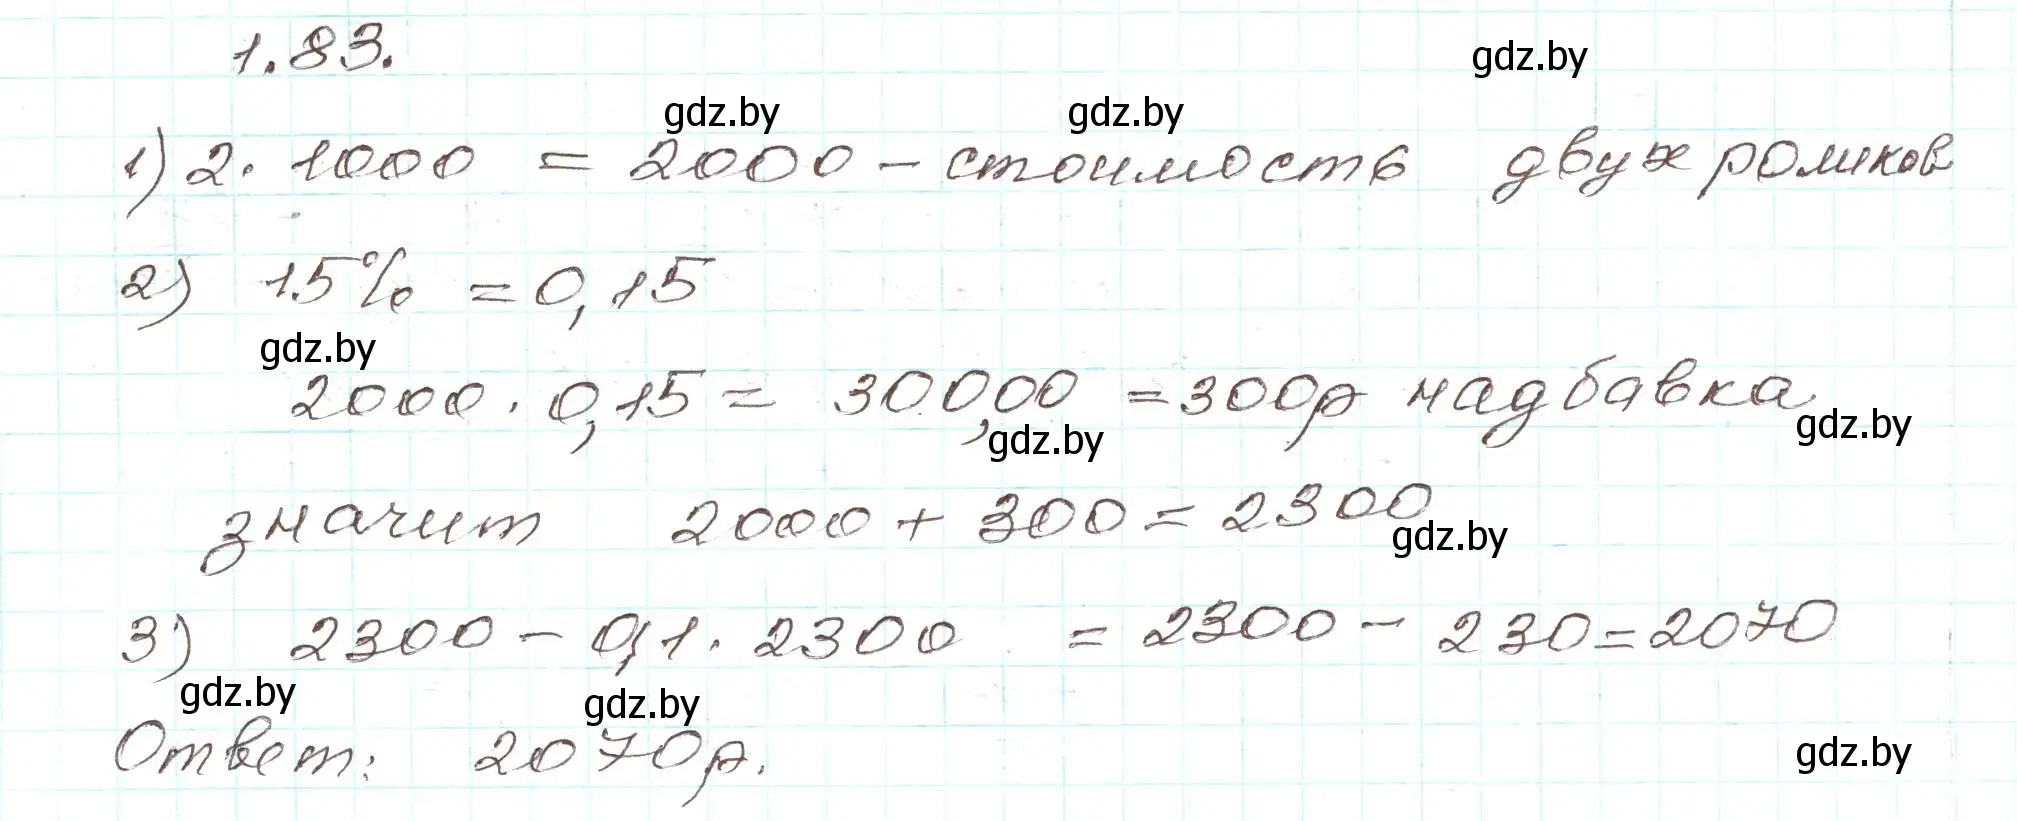 1.83.
gdz.by
gdz.by gdz.by
1) 2 · 1000 = 2000 - стоимость двух роликов
2) 15% = 0,15
gdz.by
2000 · 0,15 = 300,00 = 300р надбавка
gdz.by gdz.by
значит 2000 + 300 = 2300
gdz.by
3) 2300 - 0,1 · 2300 = 2300 - 230 = 2070
gdz.by gdz.by
Ответ: 2070р.
gdz.by